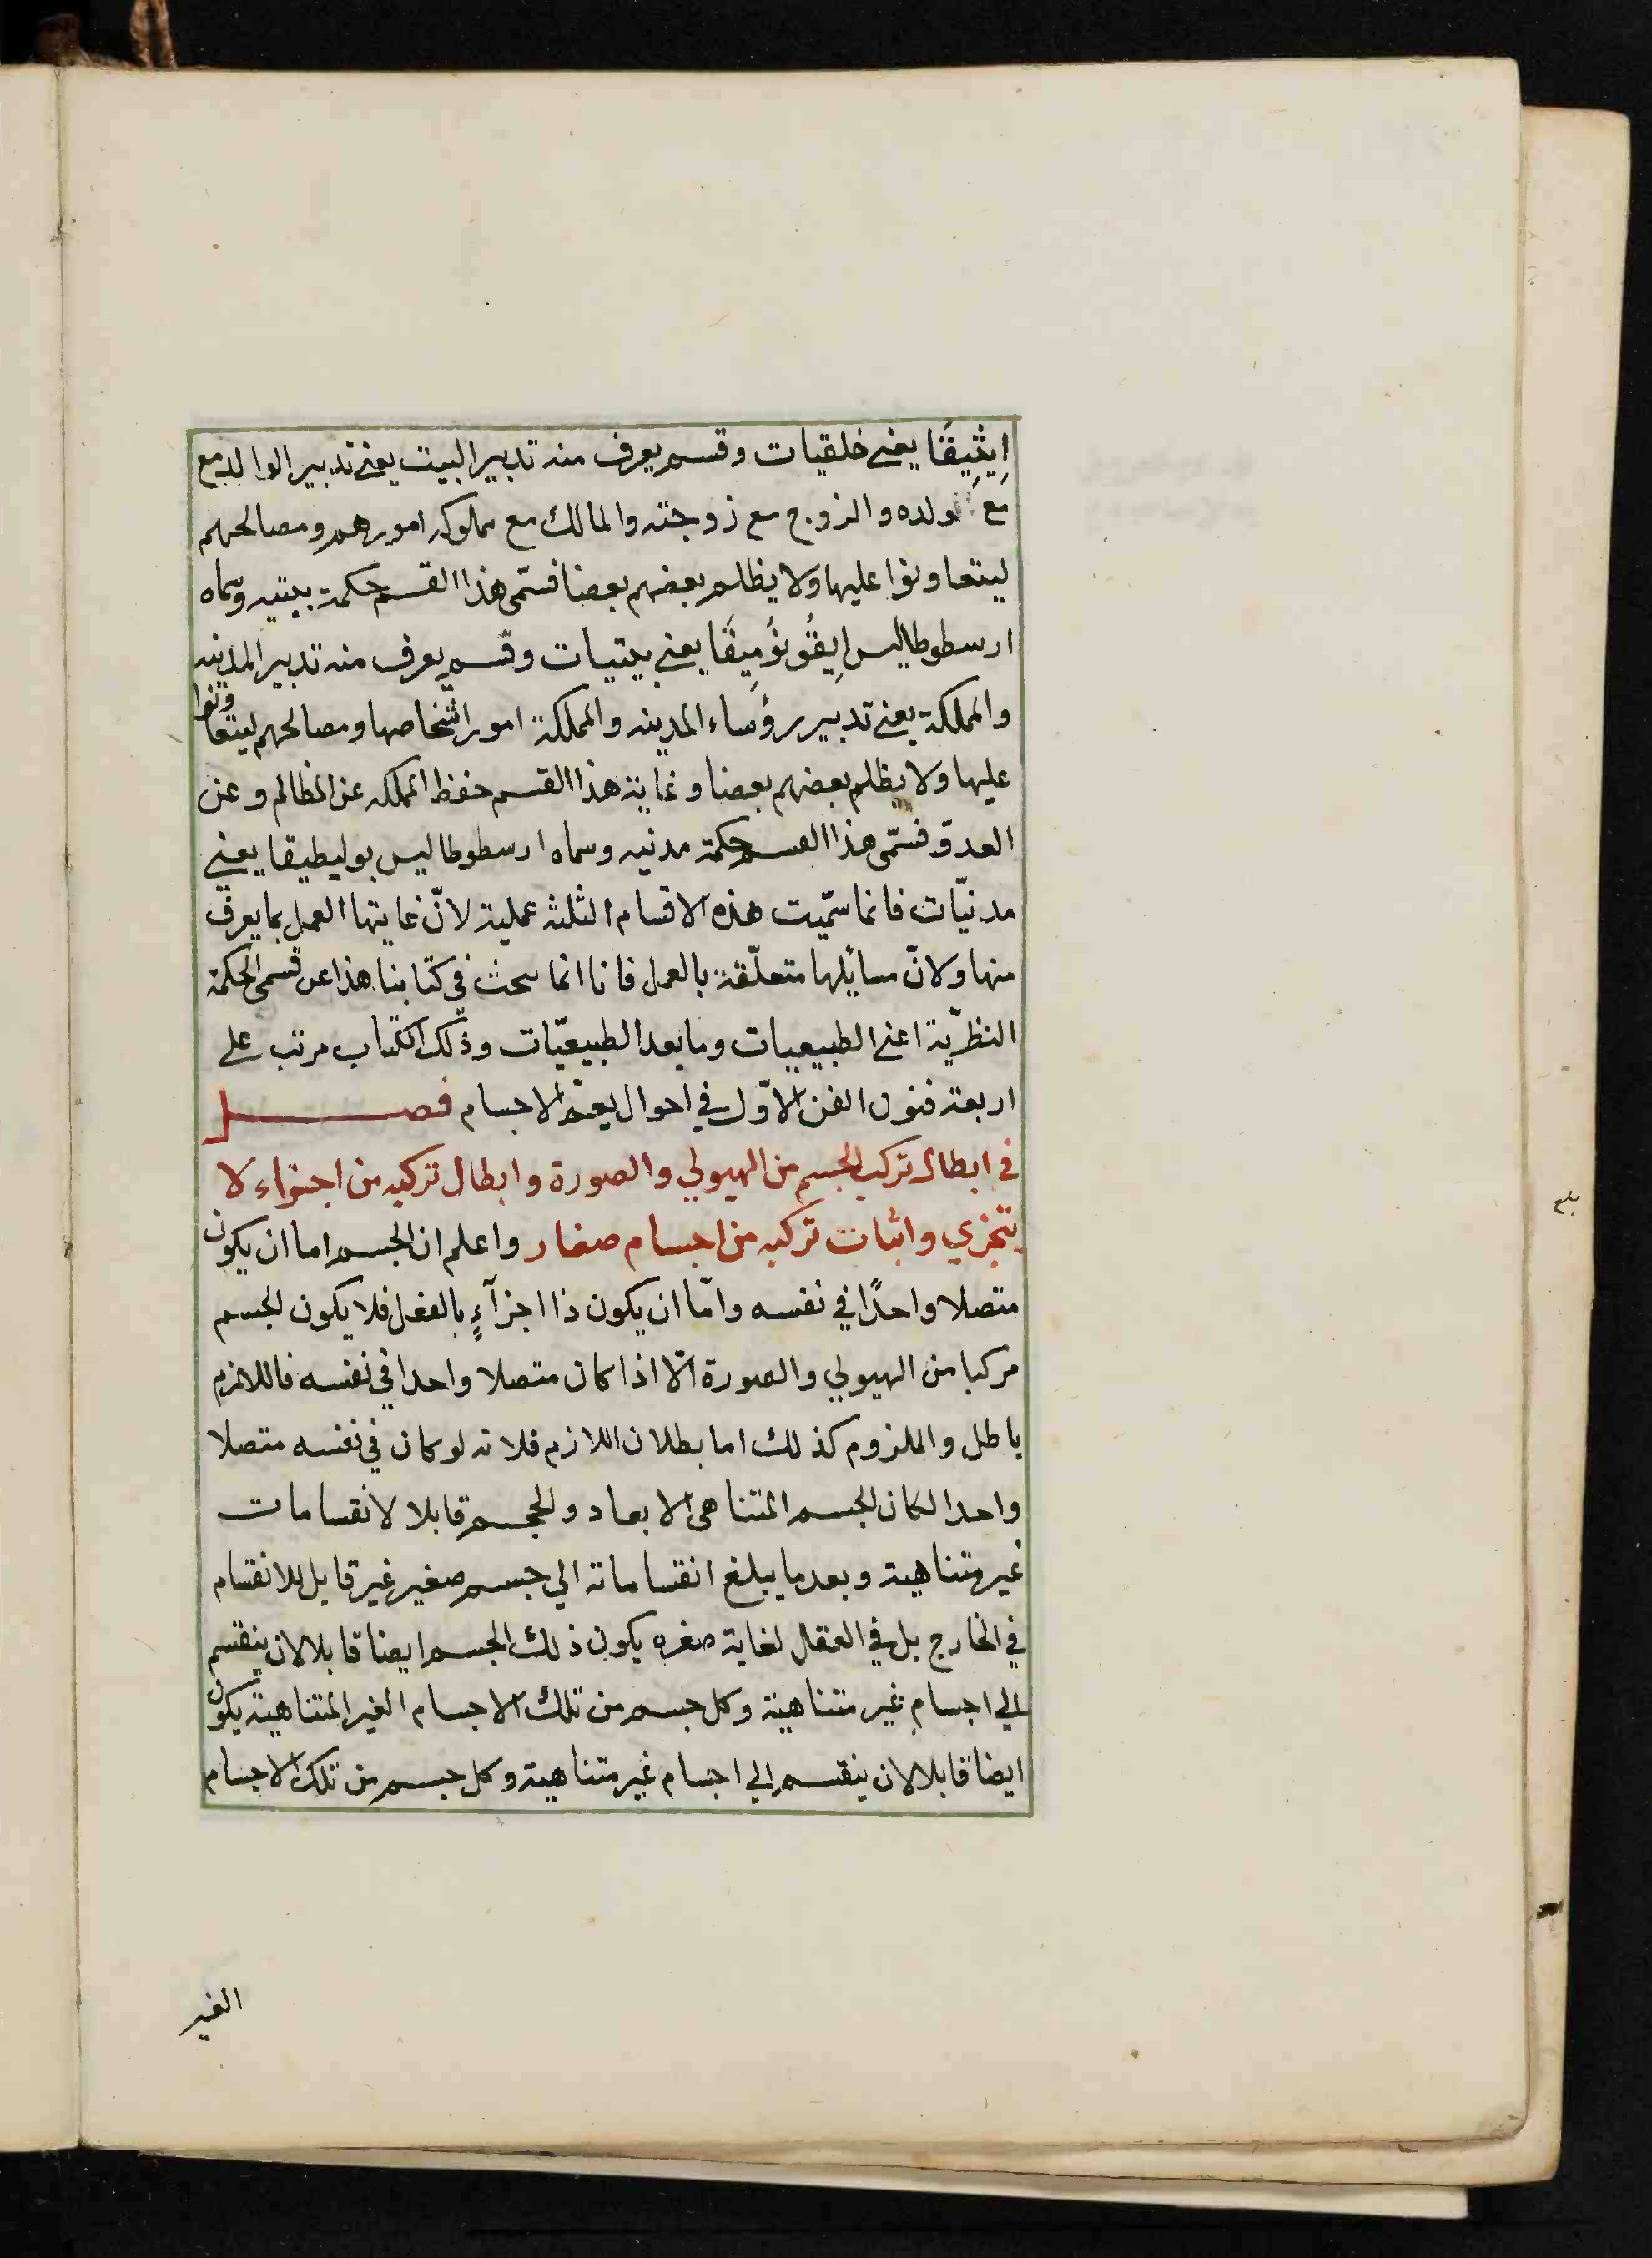 اِيثِيقَا يعنى خلقيات وقسم يعرف منه تدبير البيت يعنى تدبير الوالد مع
مع ولده والزوج مع زوجته والمالك مع مملوكه امورهم ومصالحهم
ليتعاونوا عليها ولا يظلم بعضهم بعضا فسمّى هذا القسم حكمة بيتيه وسماه
ارسطوطاليس اِيقُونُومِيقَا يعنى بيتيات وقسم يعرف منه تدبير المدينه
والمملكة يعنى تدبير رؤساء المدينه والمملكة امور اشخاصها ومصالحهم ليتعاونوا
عليها ولا يظلم بعضهم بعضا وغاية هذا القسم حفظ المملكه عن المظالم وعن
العدوّ فسمّى هذا القسم حكمة مدنيه وسماه ارسطوطاليس بوليطيقا يعنى
مدنيّات فانما سمّيت هذه الاقسام الثلثه عملية لانّ غايتها العمل بما يعرف
منها ولانّ مسائلها متعلّقة بالعمل فانا انما نبحث فى كتابنا هذا عن قسمى الحكمة
النظريّة اعنى الطبيعيات وما بعد الطبيعيّات وذلك الكتاب مرتب على
اربعة فنون الفن الاوّل في احوال يعمّ الاجسام فصل
في ابطال تركب الجسم من الهيولي والصورة وابطال تركبه من اجزاء لا
يتجزي واثبات تركبه من اجسام صغار واعلم ان الجسم اما ان يكون
متصلا واحدًا في نفسه وامّا ان يكون ذا اجزآءٍ بالفعل فلا يكون الجسم
مركبا من الهيولي والصورة الّا اذا كان متصلا واحدا في نفسه فاللازم
باطل والملزوم كذلك اما بطلان اللازم فلانه لو كان في نفسه متصلا
واحدا لكان الجسم المتناهى الابعاد والحجم قابلا لانقسامات
غير متناهية وبعد ما يبلغ انقساماته الي جسم صغير غير قابل للانقسام
في الخارج بل في العقل لغاية صغره يكون ذلك الجسم ايضا قابلا لان ينقسم
الي اجسام غير متناهية وكل جسم من تلك الاجسام الغير المتناهية يكون
ايضا قابلا لان ينقسم الي اجسام غير متناهية وكل جسم من تلك الاجسام
الغير